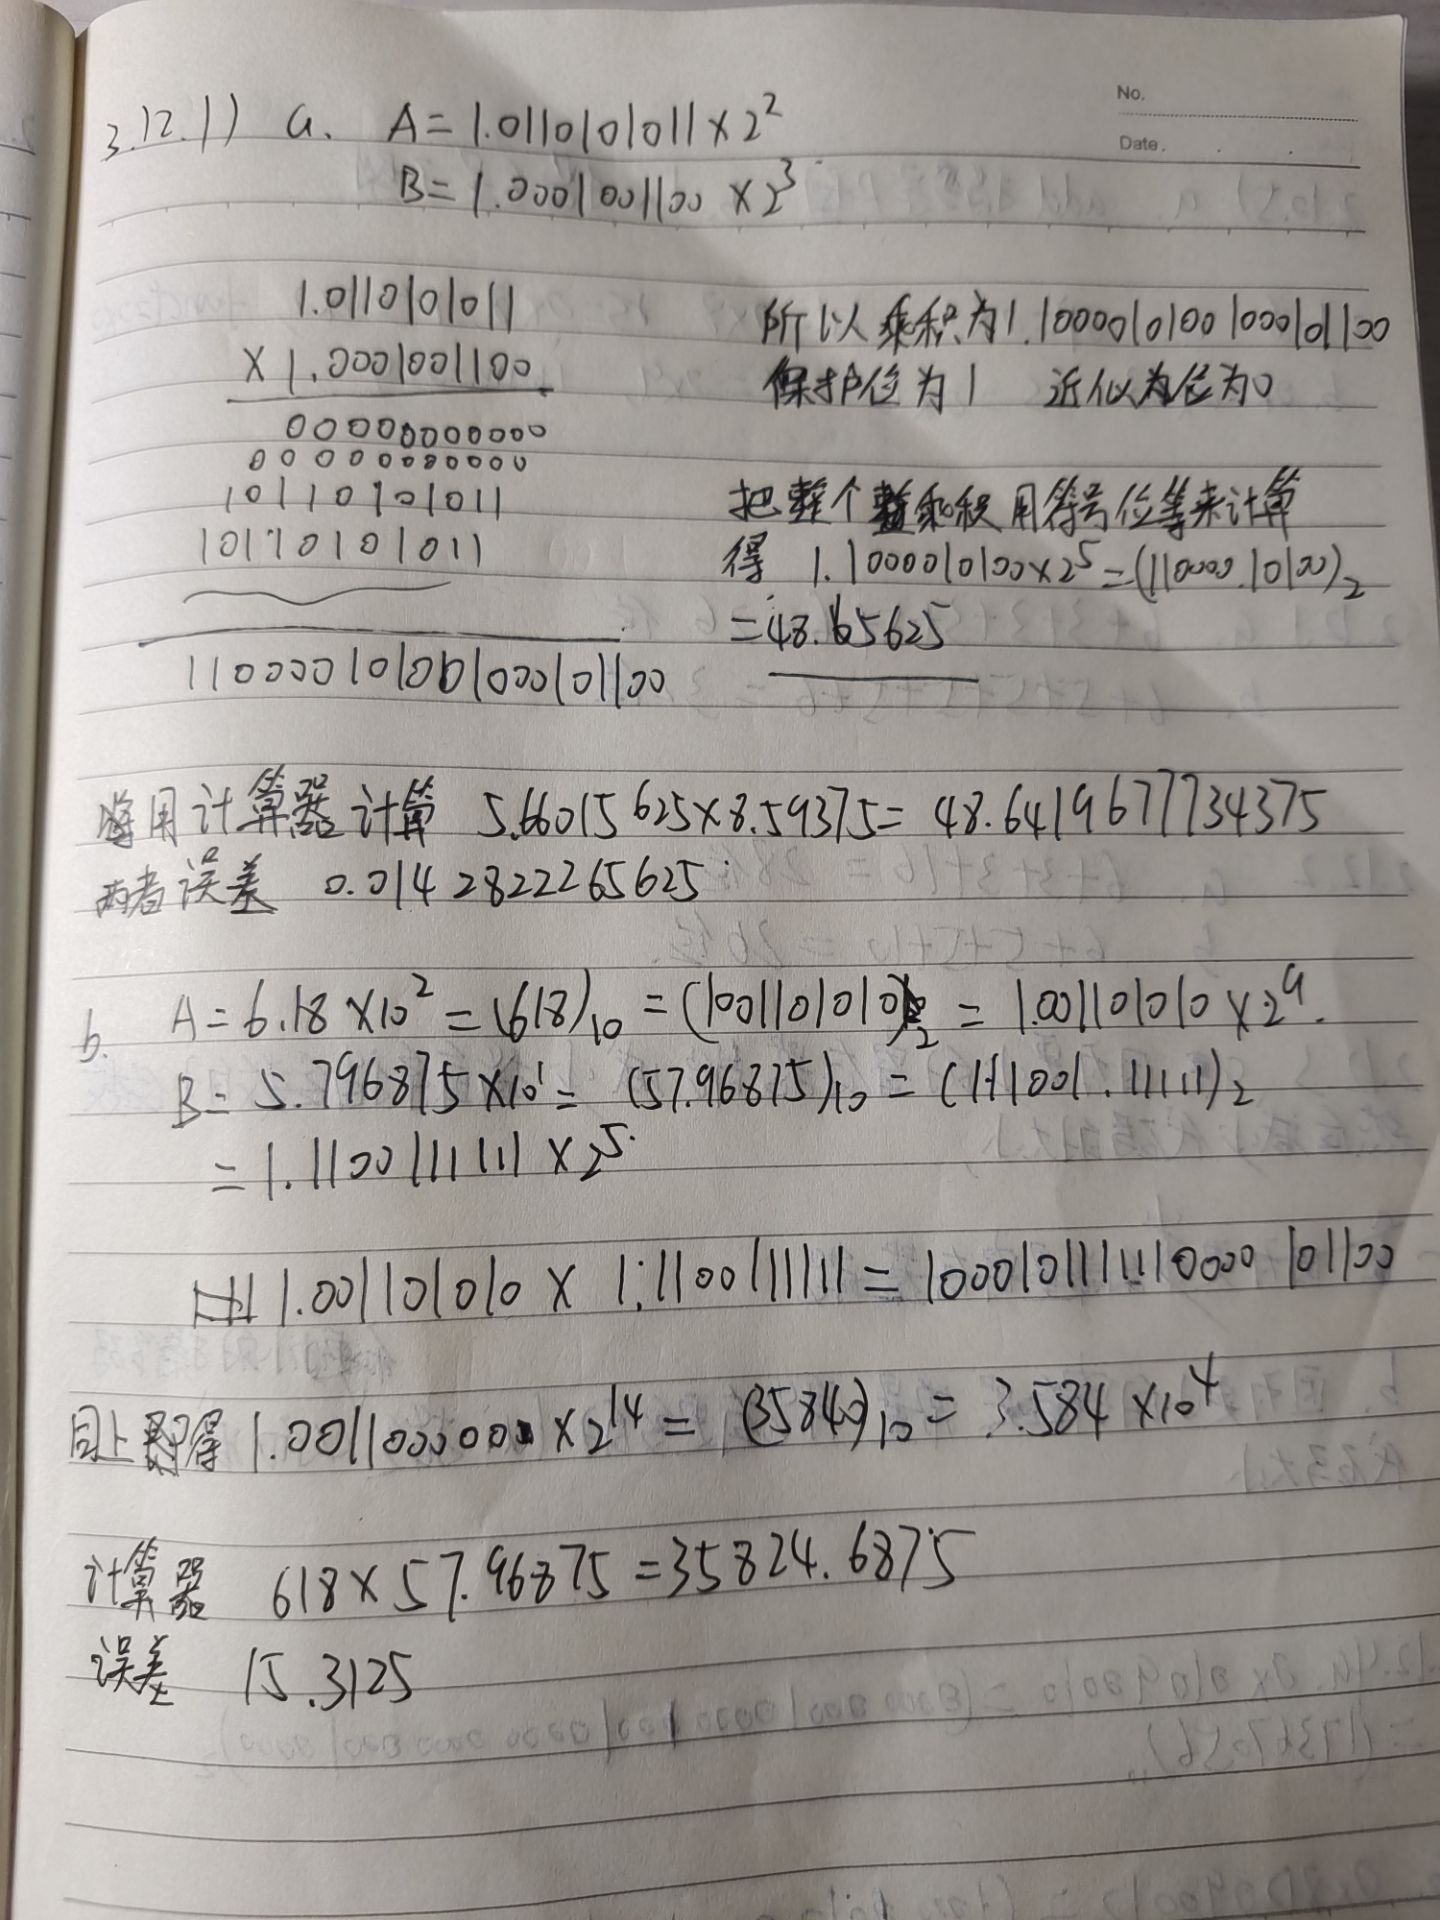 No.
Date.
3.12.1) a. A=1.0110101011×2²
B=1.0001001100×2³
1.0110101011
×1.0001001100
00000000000
00000000000
10110101011
10110101011
110000101001000101100
所以乘积为1.10000101001000101100
保护位为1 近似位为0
把整个乘积用符号位等来计算
得 1.1000010100×2⁵=(110000.10100)₂
=48.65625
用计算器计算 5.66015625×8.59375=48.6419677734375
两者误差 0.0142822265625
b. A=6.18×10²=(618)₁₀=(1001101010)₂=1.001101010×2⁹.
B=5.796875×10¹=(57.96875)₁₀=(111001.11111)₂
=1.1100111111×2⁵.
1.001101010×1.1100111111=
同上可得 1.0011000000×2¹⁴=(35840)₁₀=3.584×10⁴
计算器 618×57.96875=35824.6875
误差 15.3125